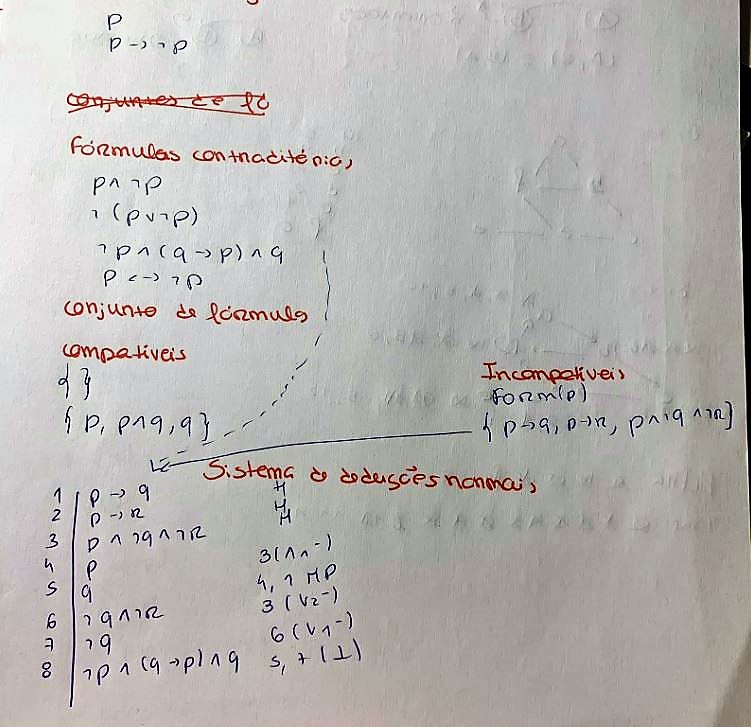 p
p → ¬p
conjuntos de fó
Fórmulas contraditória,
p ∧ ¬p
¬ (p ∨ ¬p)
¬p ∧ (q → p) ∧ q
p <-> ¬p
conjunto de fórmula
compatíveis
{ }
{ p, p∧q, q }
Incompatíveis
Form(p)
{ p→q, p→r, p∧¬q∧¬r }
Sistema de deduções normais
1 p → q H
2 p → r H
3 p ∧ ¬q ∧ ¬r H
4 p 3(∧1-)
5 q 4, 1 MP
6 ¬q ∧ ¬r 3 (∨2-)
7 ¬q 6 (∨1-)
8 ¬p ∧ (q → p) ∧ q 5, 7 (⊥)